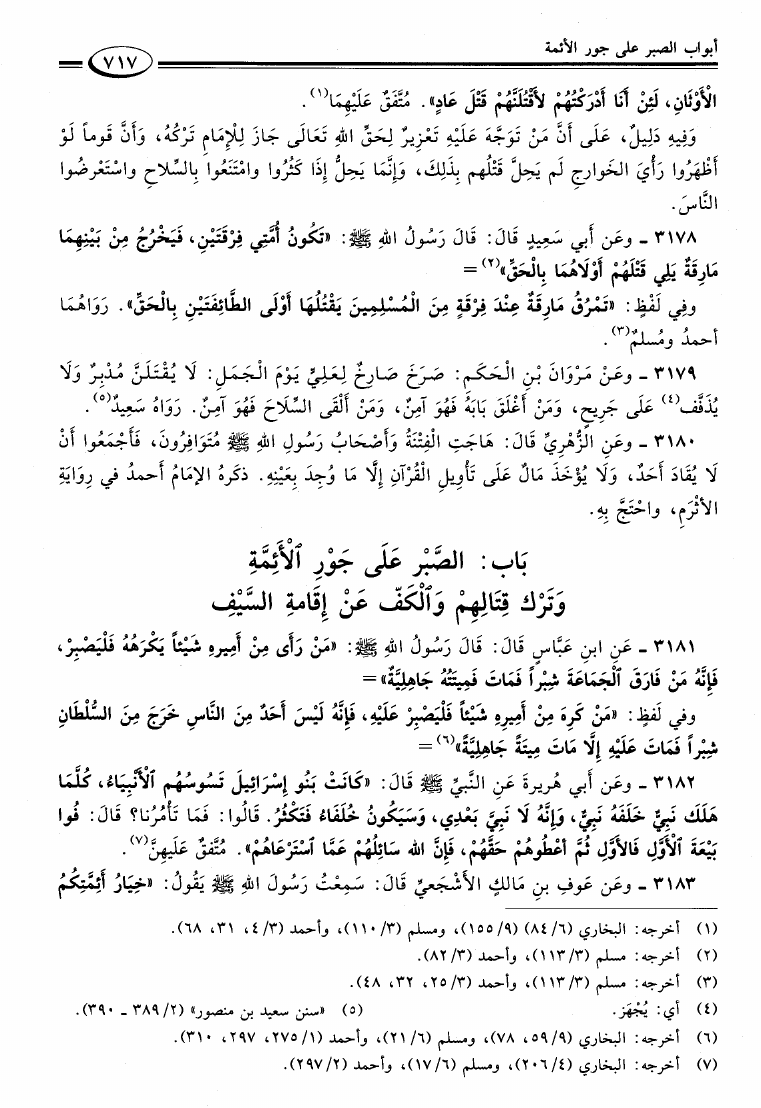 أبواب الصبر على جور الأئمة
٧١٧
الْأَوْثَانِ، لَئِنْ أَنَا أَدْرَكْتُهُمْ لأَقْتُلَنَّهُمْ قَتْلَ عَادٍ». مُتَّفَقٌ عَلَيْهِمَا(١).
وَفِيهِ دَلِيلٌ، عَلَى أَنَّ مَنْ تَوَجَّهَ عَلَيْهِ تَعْزِيرٌ لِحَقِّ اللهِ تَعَالَى جَازَ لِلْإِمَامِ تَرْكُهُ، وَأَنَّ قَوماً لَوْ
أَظْهَرُوا رَأْيَ الخَوارجِ لَم يَحِلَّ قَتْلُهم بِذَلِكَ، وَإِنَّمَا يَحِلُّ إِذَا كَثُرُوا وامْتَنَعُوا بِالسِّلَاحِ واسْتَعْرَضُوا
النَّاسَ.
٣١٧٨ ـ وعَن أَبي سَعِيدٍ قَالَ: قَالَ رَسُولُ اللهِ ﷺ: «تَكُونُ أُمَّتِي فِرْقَتَيْنِ، فَيَخْرُجُ مِنْ بَيْنِهِمَا
مَارِقَةٌ يَلِي قَتْلَهُمْ أَوْلَاهُمَا بِالْحَقِّ»(٢) =
وفِي لَفْظٍ: «تَمْرُقُ مَارِقَةٌ عِنْدَ فِرْقَةٍ مِنَ الْمُسْلِمِينَ يَقْتُلُهَا أَوْلَى الطَّائِفَتَيْنِ بِالْحَقِّ». رَوَاهُمَا
أحمدُ ومُسلمٌ(٣).
٣١٧٩ ـ وعَنْ مَرْوَانَ بْنِ الْحَكَمِ: صَرَخَ صَارِخٌ لِعَلِيٍّ يَوْمَ الْجَمَلِ: لَا يُقْتَلَنَّ مُدْبِرٌ وَلَا
يُذَفَّف(٤) عَلَى جَرِيحٍ، وَمَنْ أَغْلَقَ بَابَهُ فَهُوَ آمِنٌ، وَمَنْ أَلْقَى السِّلَاحَ فَهُوَ آمِنٌ. رَوَاهُ سَعِيدٌ(٥).
٣١٨٠ ـ وعَنِ الزُّهْرِيِّ قَالَ: هَاجَتِ الْفِتْنَةُ وَأَصْحَابُ رَسُولِ اللهِ ﷺ مُتَوَافِرُونَ، فَأَجْمَعُوا أَنْ
لَا يُقَادَ أَحَدٌ، وَلَا يُؤْخَذَ مَالٌ عَلَى تَأْوِيلِ الْقُرْآنِ إِلَّا مَا وُجِدَ بِعَيْنِهِ. ذكَرهُ الإِمَامُ أحمدُ في رِوَايَةِ
الأثْرَمِ، واحْتَجَّ بِهِ.
بَاب: الصَّبْرِ عَلَى جَوْرِ الْأَئِمَّةِ
وَتَرْكِ قِتَالِهِمْ وَالْكَفِّ عَنْ إِقَامةِ السَّيْفِ
٣١٨١ ـ عَنِ ابنِ عَبَّاسٍ قَالَ: قَالَ رَسُولُ اللهِ ﷺ: «مَنْ رَأَى مِنْ أَمِيرِهِ شَيْئاً يَكْرَهُهُ فَلْيَصْبِرْ،
فَإِنَّهُ مَنْ فَارَقَ الْجَمَاعَةَ شِبْراً فَمَاتَ فَمِيتَتُهُ جَاهِلِيَّةٌ» =
وفي لَفظٍ: «مَنْ كَرِهَ مِنْ أَمِيرِهِ شَيْئاً فَلْيَصْبِرْ عَلَيْهِ، فَإِنَّهُ لَيْسَ أَحَدٌ مِنَ النَّاسِ خَرَجَ مِنَ السُّلْطَانِ
شِبْراً فَمَاتَ عَلَيْهِ إِلَّا مَاتَ مِيتَةً جَاهِلِيَّةً»(٦) =
٣١٨٢ ـ وعَن أبي هُريرةَ عَنِ النَّبِيِّ ﷺ قَالَ: «كَانَتْ بَنُو إِسْرَائِيلَ تَسُوسُهُم الْأَنْبِيَاءُ، كُلَّمَا
هَلَكَ نَبِيٌّ خَلَفَهُ نَبِيٌّ، وَإِنَّهُ لَا نَبِيَّ بَعْدِي، وَسَيَكُونُ خُلَفَاءُ فَتَكْثُرُ. قَالُوا: فَمَا تَأْمُرُنا؟ قَالَ: فُوا
بَيْعَةَ الْأَوَّلِ فَالأَوَّلِ ثُمَّ أَعْطُوهُمْ حَقَّهُمْ، فَإِنَّ الله سَائِلُهُمْ عَمَّا اسْتَرْعَاهُمْ». مُتَّفقٌ عَليهِنَّ(٧).
٣١٨٣ ـ وعَن عَوفِ بنِ مَالكٍ الأشْجَعيِّ قَالَ: سَمِعْتُ رَسُولَ اللهِ ﷺ يَقُولُ: «خِيَارُ أَئِمَّتِكُمُ
(١) أخرجه: البخاري (٦/ ٨٤) (٩/ ١٥٥)، ومسلم (٣/ ١١٠)، وأحمد (٣/ ٤، ٣١، ٦٨).
(٢) أخرجه: مسلم (٣/ ١١٣)، وأحمد (٣/ ٨٢).
(٣) أخرجه: مسلم (٣/ ١١٣)، وأحمد (٣/ ٢٥، ٣٢، ٤٨).
(٤) أي: يُجْهَز. (٥) «سنن سعيد بن منصور» (٢/ ٣٨٩ ـ ٣٩٠).
(٦) أخرجه: البخاري (٩/ ٥٩، ٧٨)، ومسلم (٦/ ٢١)، وأحمد (١/ ٢٧٥، ٢٩٧، ٣١٠).
(٧) أخرجه: البخاري (٤/ ٢٠٦)، ومسلم (٦/ ١٧)، وأحمد (٢/ ٢٩٧).